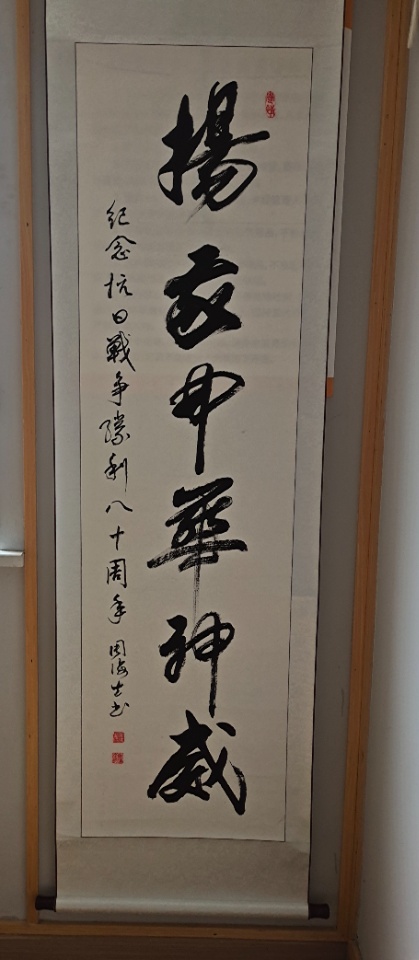 揚我中華神威
紀念抗日戰爭勝利八十周年 周海士書